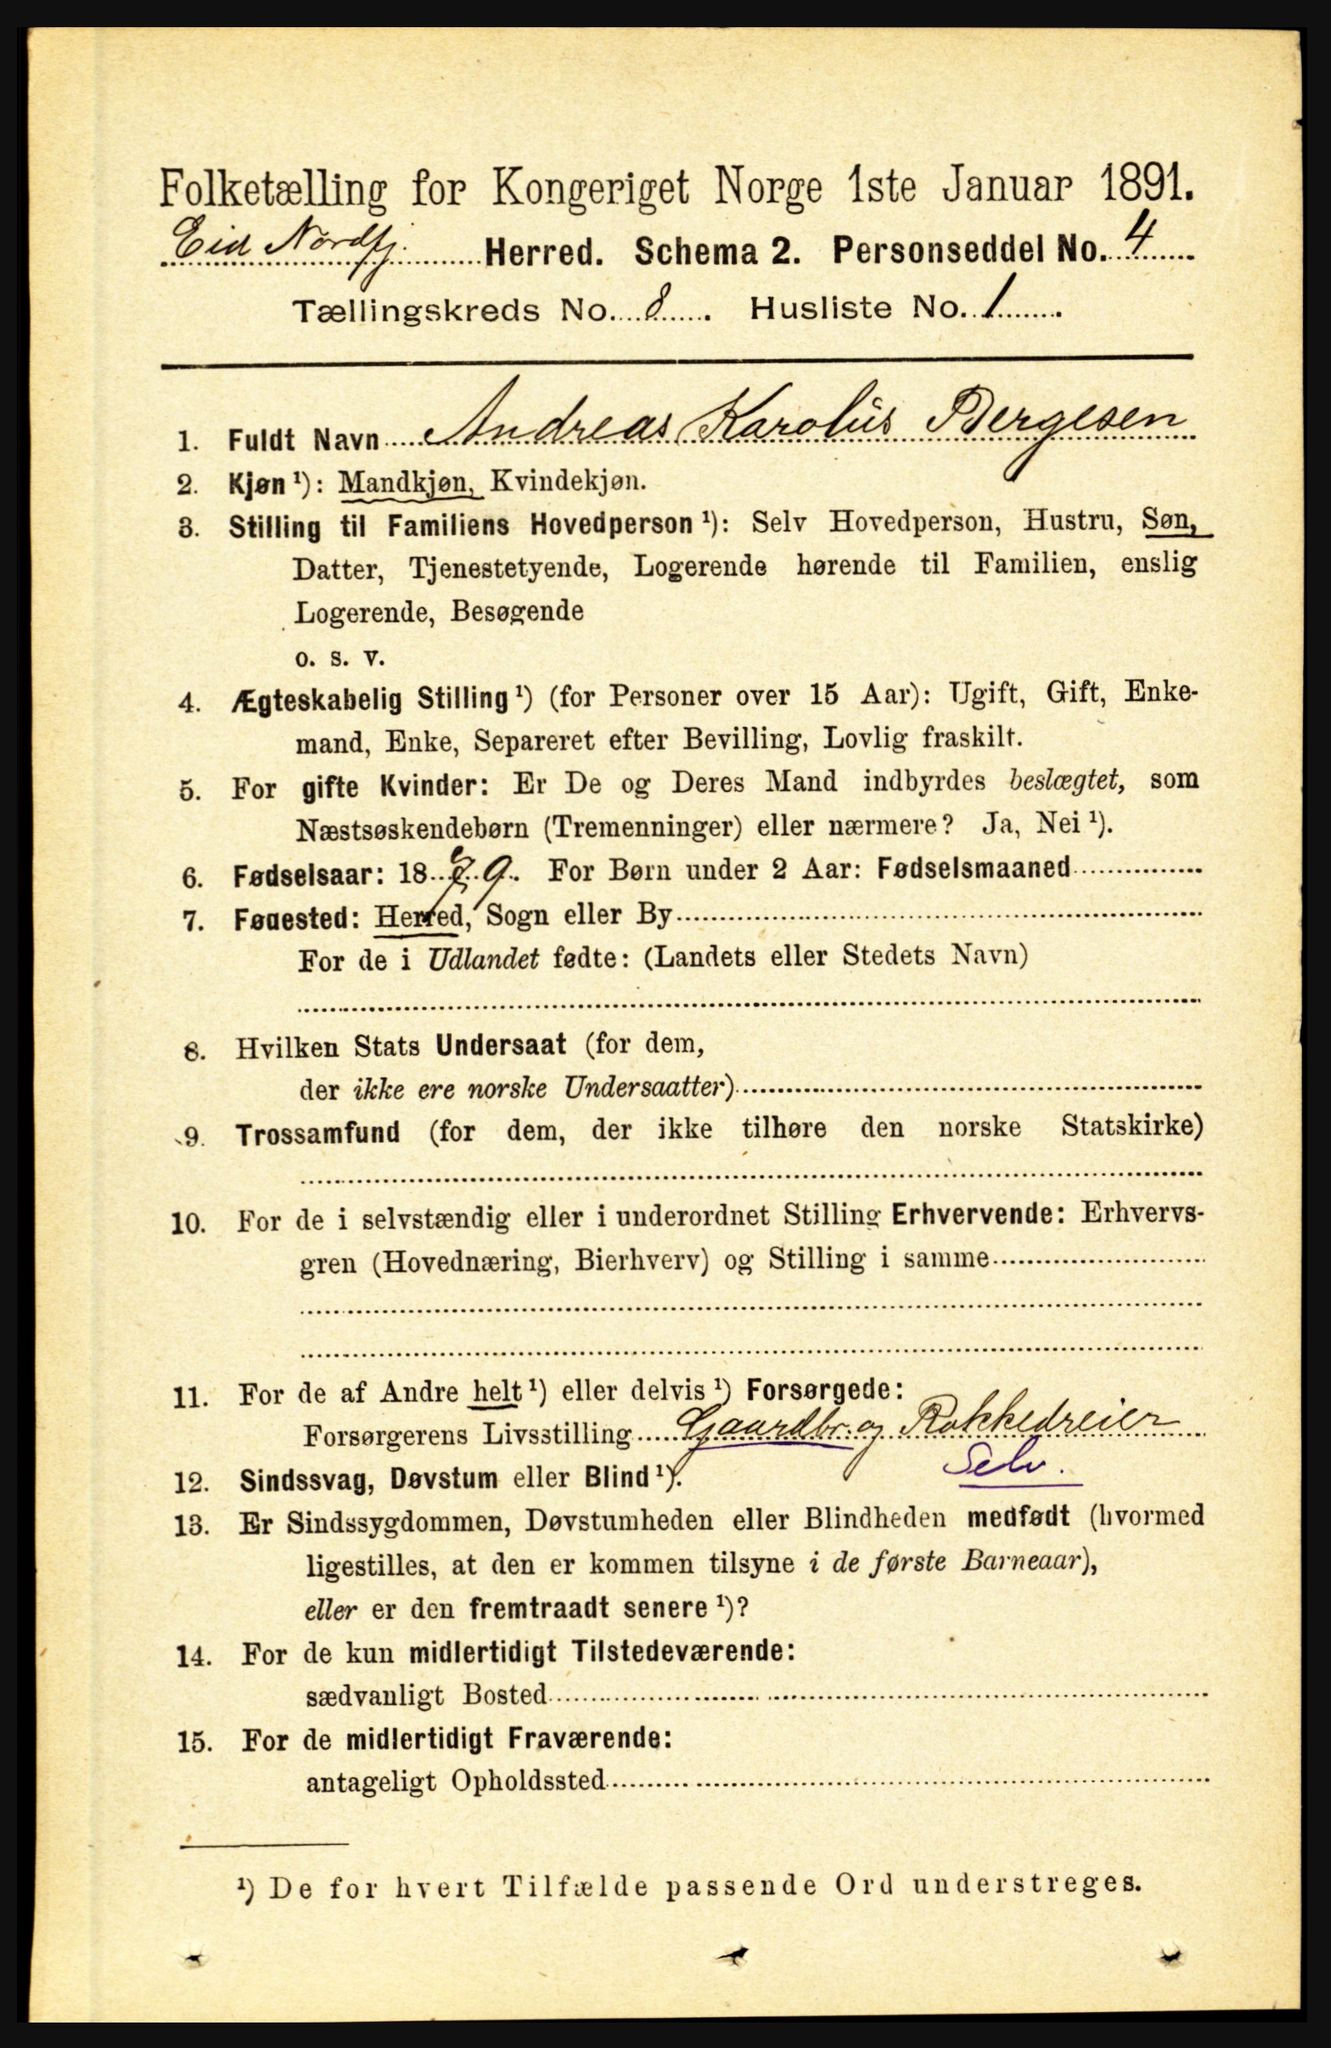 Folketælling for Kongeriget Norge 1ste Januar 1891.
Eid Nordfj. Herred. Schema 2. Personseddel No. 4
Tællingskreds No. 8. Husliste No. 1.
1. Fuldt Navn Andreas Karolus Bergesen
2. Kjøn ¹): Mandkjøn, Kvindekjøn.
3. Stilling til Familiens Hovedperson ¹): Selv Hovedperson, Hustru, Søn,
Datter, Tjenestetyende, Logerende hørende til Familien, enslig
Logerende, Besøgende
o. s. v.
4. Ægteskabelig Stilling ¹) (for Personer over 15 Aar): Ugift, Gift, Enke-
mand, Enke, Separeret efter Bevilling, Lovlig fraskilt.
5. For gifte Kvinder: Er De og Deres Mand indbyrdes beslægtet, som
Næstsøskendebørn (Tremenninger) eller nærmere? Ja, Nei ¹).
6. Fødselsaar: 18 9. For Børn under 2 Aar: Fødselsmaaned
7. Fødested: Herred, Sogn eller By
For de i Udlandet fødte: (Landets eller Stedets Navn)
8. Hvilken Stats Undersaat (for dem,
der ikke ere norske Undersaatter)
9. Trossamfund (for dem, der ikke tilhøre den norske Statskirke)
10. For de i selvstændig eller i underordnet Stilling Erhvervende: Erhvervs-
gren (Hovednæring, Bierhverv) og Stilling i samme
11. For de af Andre helt ¹) eller delvis ¹) Forsørgede:
Forsørgerens Livsstilling Gaardbr. og Rokkedreier
Selv.
12. Sindssvag, Døvstum eller Blind ¹).
13. Er Sindssygdommen, Døvstumheden eller Blindheden medfødt (hvormed
ligestilles, at den er kommen tilsyne i de første Barneaar),
eller er den fremtraadt senere ¹)?
14. For de kun midlertidigt Tilstedeværende:
sædvanligt Bosted
15. For de midlertidigt Fraværende:
antageligt Opholdssted
¹) De for hvert Tilfælde passende Ord understreges.